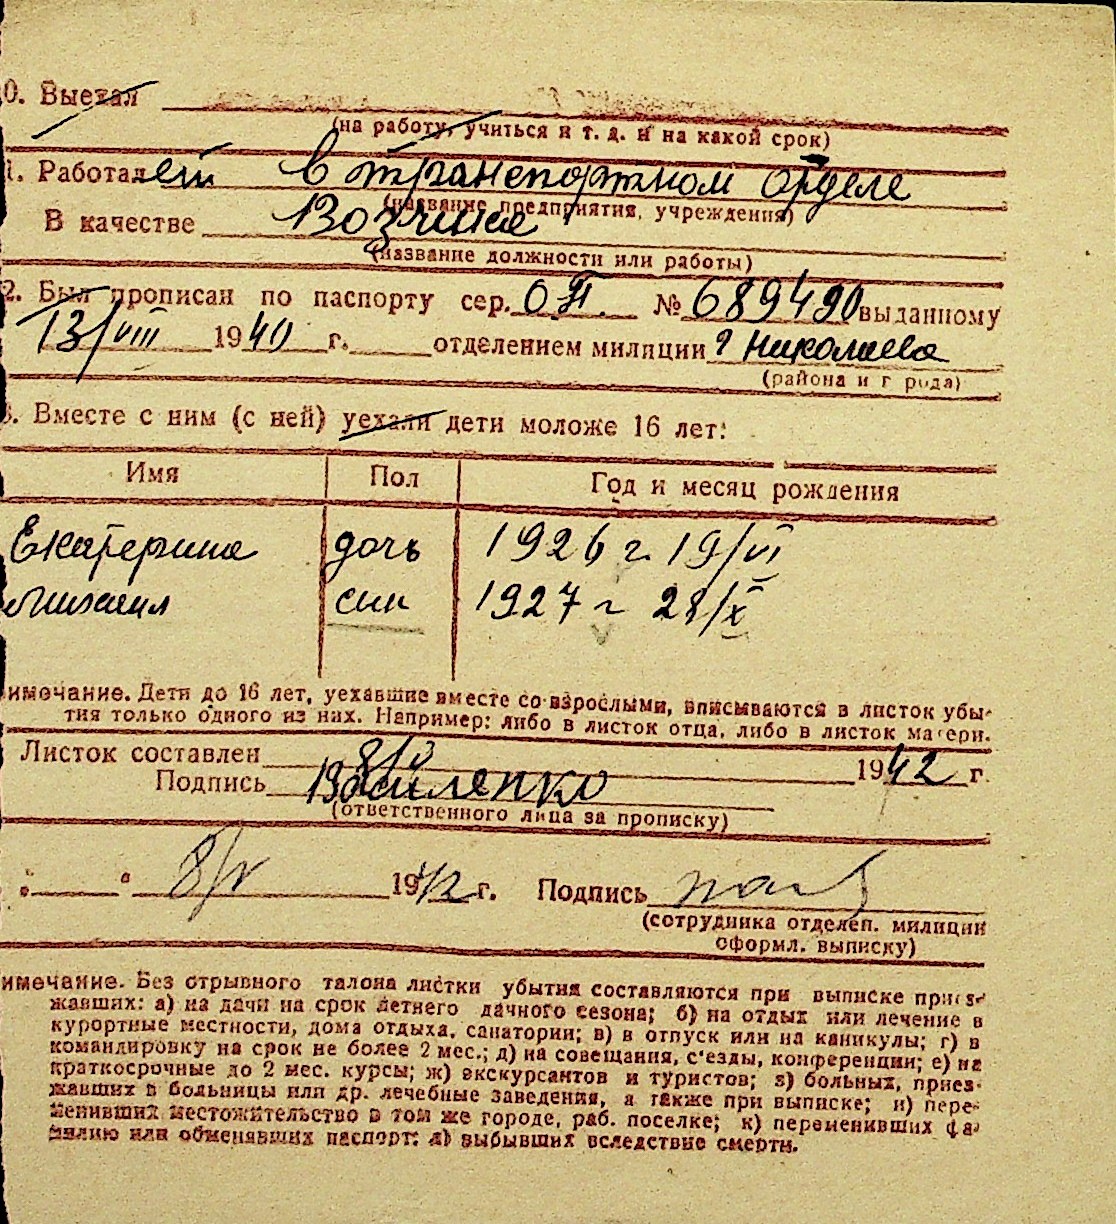 0. Выехал
(на работу, учиться и т. д. и на какой срок)
1. Работает в транспортном отделе
(название предприятия, учреждения)
В качестве Возчика
(название должности или работы)
2. Был прописан по паспорту сер. № 689490 выданному
13/VIII 1940 г. отделением милиции г Николаева
(района и г рода)
3. Вместе с ним (с ней) уехали дети моложе 16 лет:
Имя Пол Год и месяц рождения
Екатерина дочь 1926 г. 19/VI
Михаил син 1927 г 28/X
имечание. Дети до 16 лет, уехавшие вместе со взрослыми, вписываются в листок убы-
тия только одного из них. Например: либо в листок отца, либо в листок матери.
Листок составлен 1942 г.
Подпись Василенко
(ответственного лица за прописку)
" " 8/V 1942 г. Подпись
(сотрудника отделен. милиции
оформл. выписку)
имечание. Без отрывного талона листки убытия составляются при выписке приез-
жавших: а) на дачи на срок летнего дачного сезона; б) на отдых или лечение в
курортные местности, дома отдыха, санатории; в) в отпуск или на каникулы; г) в
командировку на срок не более 2 мес.; д) на совещания, с'езды, конференции; е) на
краткосрочные до 2 мес. курсы; ж) экскурсантов и туристов; з) больных, приез-
жавших в больницы или др. лечебные заведения, а также при выписке; и) пере-
менивших местожительство в том же городе, раб. поселке; к) переменивших фа-
милию или обменявших паспорт; л) выбывших вследствие смерти.